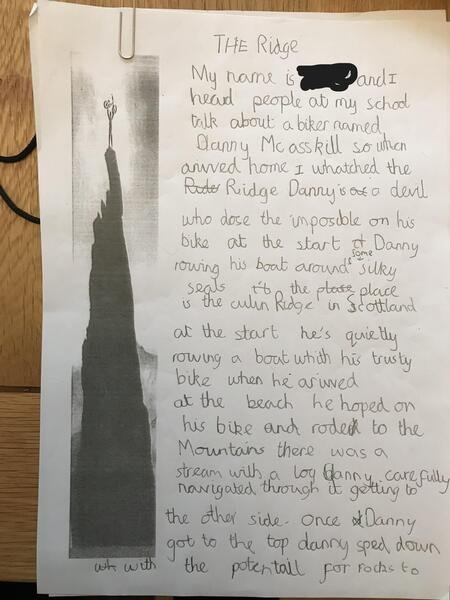 THE Ridge
My name is and I
head people at my school
talk about a biker named
Danny Mc asskill so when
arived home I whatched the
Ridge Danny is a devil
who dose the imposible on his
bike at the start of Danny
rowing his boat around some silky
seals the place
is the culin Ridge in Scottland
at the start he's quietly
rowing a boat whith his trusty
bike when he arived
at the beach he hoped on
his bike and rode to the
Mountains there was a
stream with a log Danny carefully
navigated through it getting to
the other side. Once Danny
got to the top danny sped down
with the potentall for rocks to